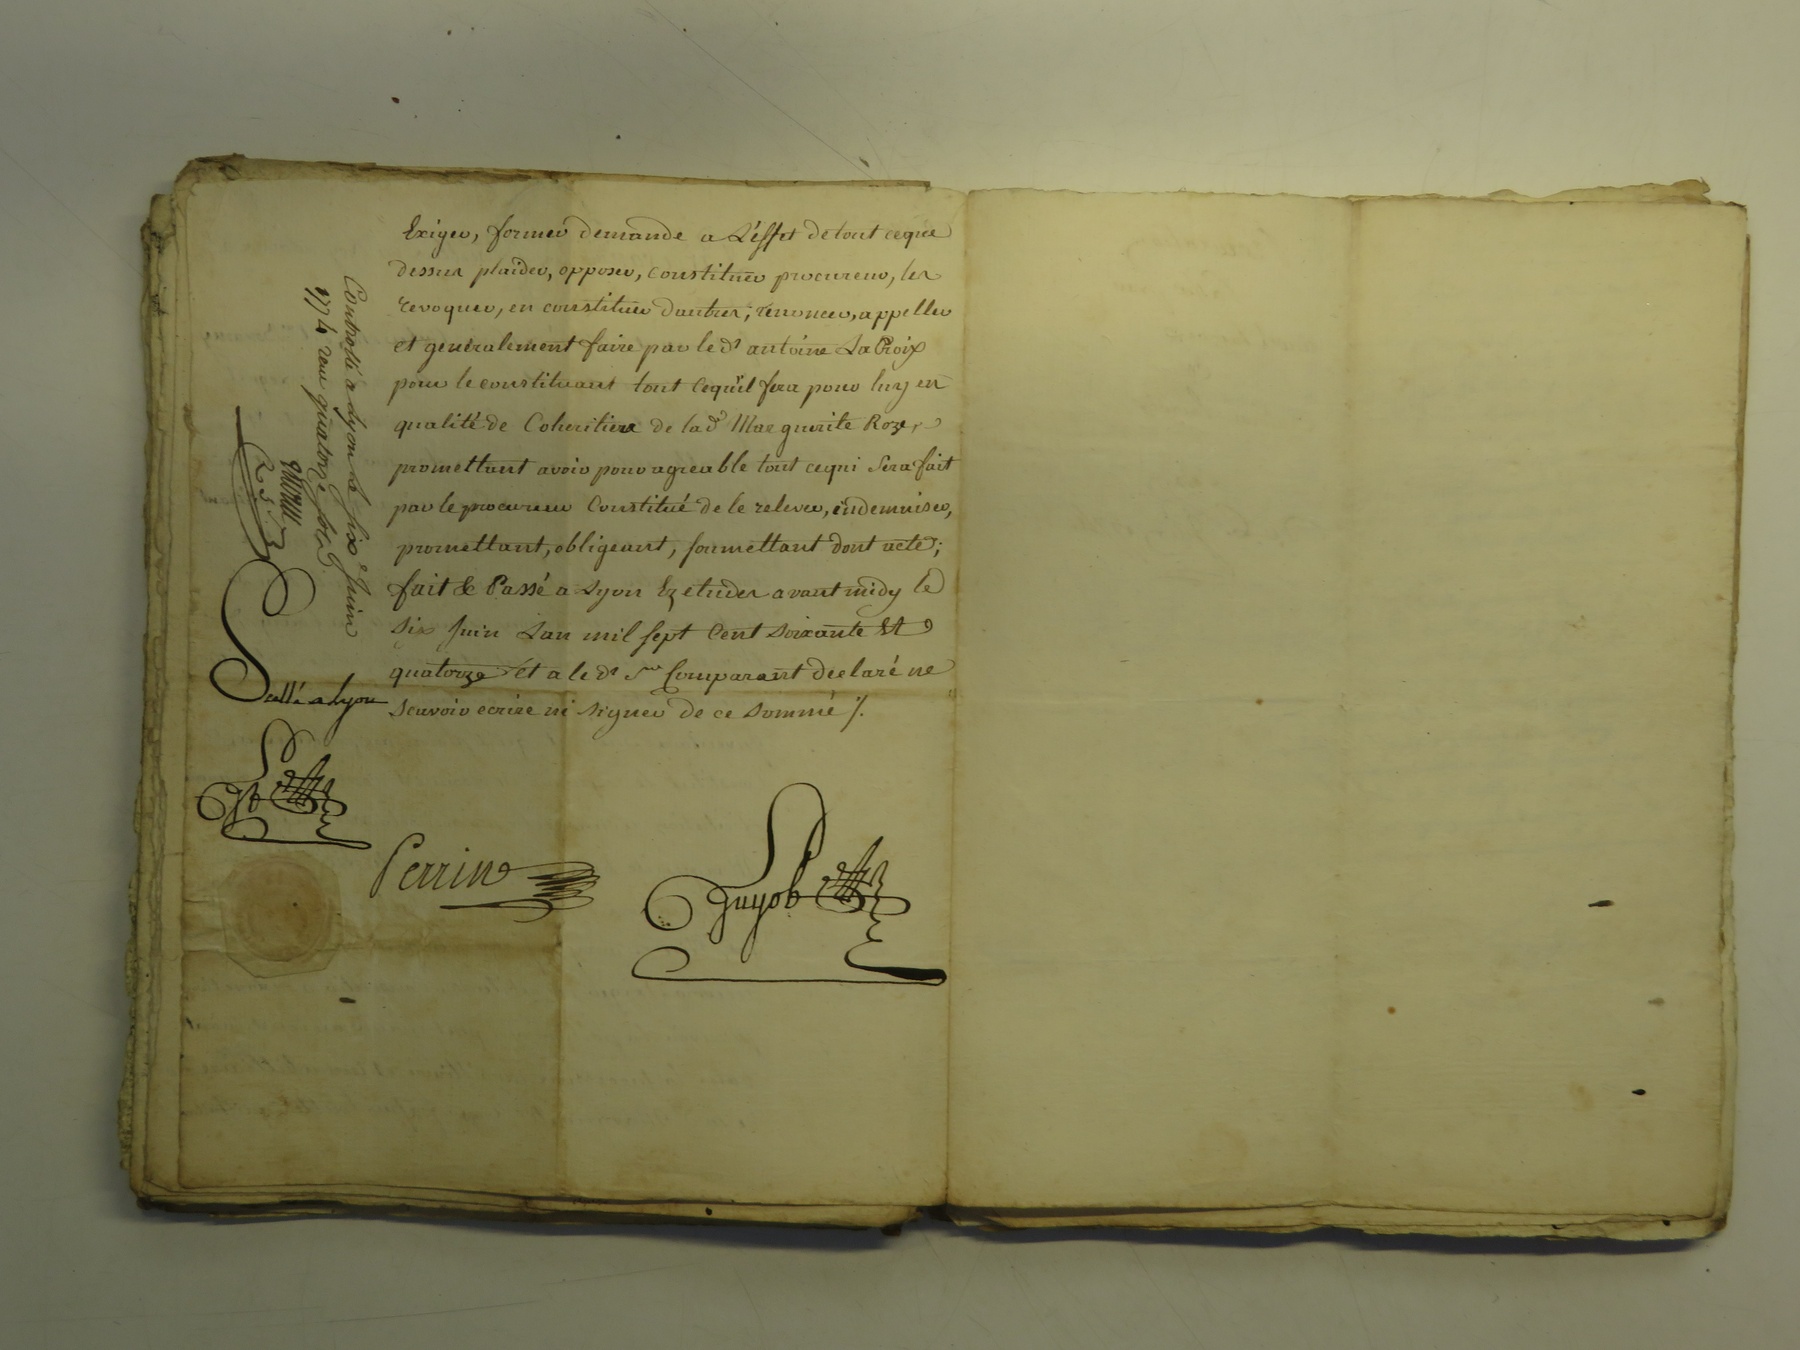 Exiger, former demande a L'effet de tout ceque
dessus plaider, opposer, constituer procureur, les
revoquer, en constituer dautres; renoncer, appeller
et generalement faire par le dt antoine LaCroix
pour le constituant tout cequ'il fera pour luy en
qualité de Coheritiere de lad Marguerite Roze,
promettant avoir pour agreable tout cequi Sera fait
par le procureur Constitué de le relever, indemniser,
promettant, obligeant, soumettant dont acte;
fait & Passé a Lyon Ez etudes avant midy le
six Juin Lan mil sept Cent soixante Et
quatorze et a le dt sr Comparant declaré ne
scavoir ecrire ni signer de ce sommé %.
Controllé a Lyon le six e Juin
1774 recu quatorze sols
Scellé a Lyon
Perrin
Guyot